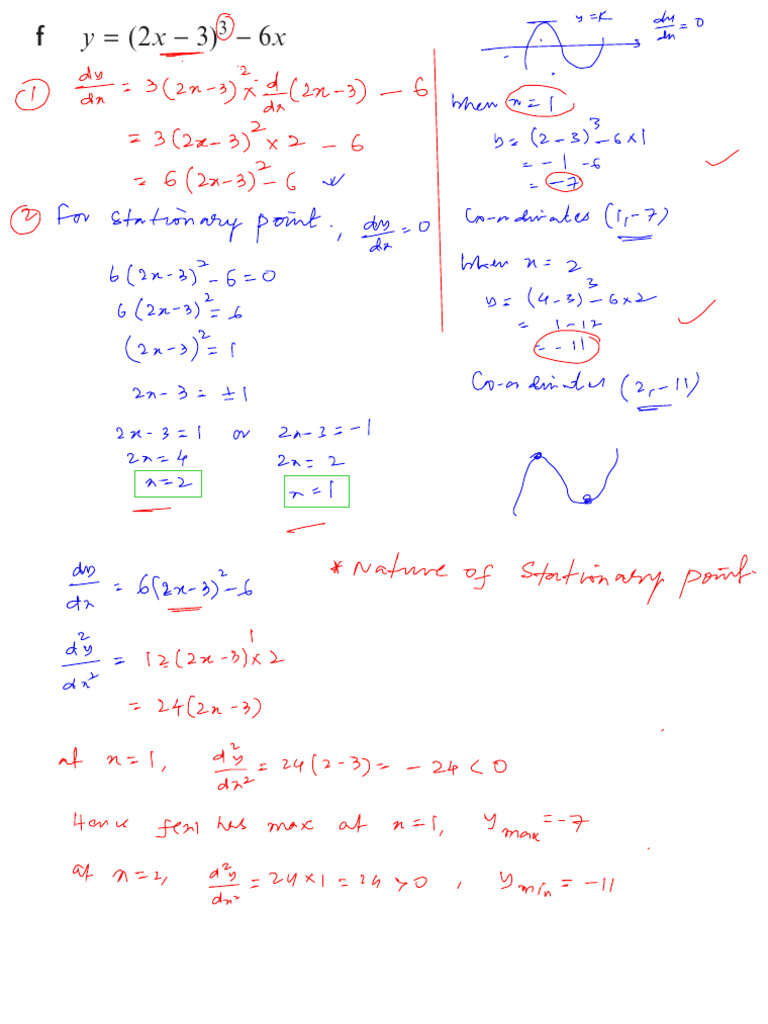 f y = (2x − 3)³ − 6x
① dy/dx = 3(2x−3)² × d/dx (2x−3) − 6
= 3(2x−3)² × 2 − 6
= 6(2x−3)² − 6
② For stationary point, dy/dx = 0
6(2x−3)² − 6 = 0
6(2x−3)² = 6
(2x−3)² = 1
2x−3 = ±1
2x−3 = 1 or 2x−3 = −1
2x = 4 2x = 2
x = 2 x = 1
y = k dy/dx = 0
When x = 1
y = (2−3)³ − 6×1
= −1 −6
= −7
Co-ordinates (1,−7)
When x = 2
y = (4−3)³ − 6×2
= 1−12
= −11
Co-ordinates (2,−11)
* Nature of Stationary point.
dy/dx = 6(2x−3)² − 6
d²y/dx² = 12(2x−3)¹ × 2
= 24(2x−3)
at x=1, d²y/dx² = 24(2−3) = −24 < 0
Hence f(x) has max at x=1, y max = −7
at x=2, d²y/dx² = 24×1 = 24 > 0, y min = −11